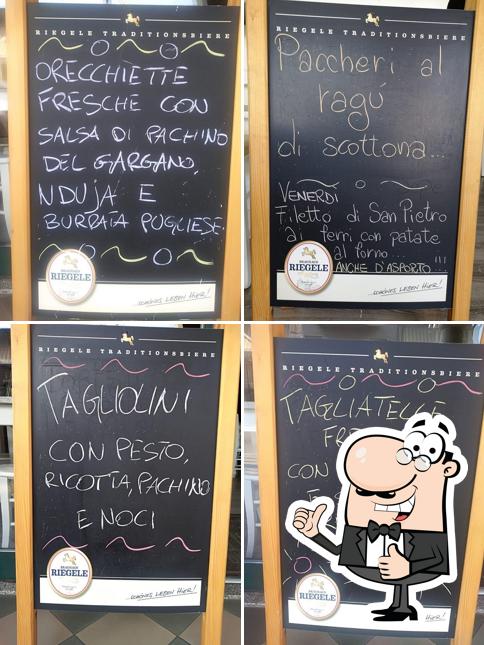 RIEGELE TRADITIONSBIERE
ORECCHIETTE
FRESCHE CON
SALSA DI PACHINO
DEL GARGANO,
NDUJA E
BURRATA PUGLIESE.
BRAUHAUS
RIEGELE
...SCHÖNES LEBEN HIER!
RIEGELE TRADITIONSBIERE
Paccheri al
ragú
di scottona...
VENERDI
Filetto di San Pietro
ai ferri con patate
al forno...
ANCHE D'ASPORTO...!!!
BRAUHAUS
RIEGELE
...SCHÖNES LEBEN HIER!
RIEGELE TRADITIONSBIERE
TAGLIOLINI
CON PESTO,
RICOTTA, PACHINO
E NOCI
BRAUHAUS
RIEGELE
...SCHÖNES LEBEN HIER!
RIEGELE TRADITIONSBIERE
TAGLIATELLE
CON
BRAUHAUS
RIEGELE
HIER!